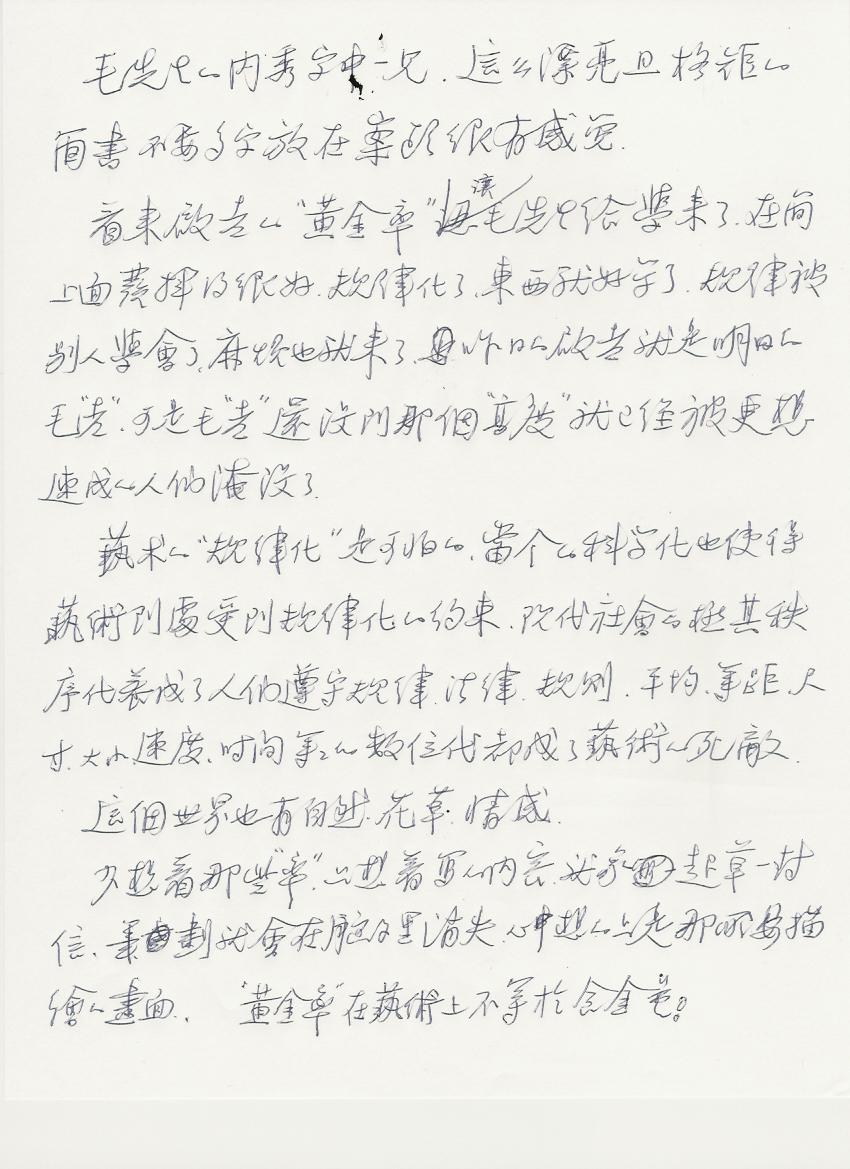 毛先生的内秀字中一見.這么漂亮且格距的
面書不要多字放在案頭很有感觉.
看来啟老的"黄金率"讓毛先生給學来了.在向
上面發揮得很好.規律化了,東西就好学了.規律被
别人學會了,麻烦也就来了.昨日的啟老就是明日的
毛"老".可是毛"老"還没到那個"高度"就已经被更想
速成的人们淹没了.
藝术的"規律化"是可怕的.當今的科学化也使得
藝術到處受到規律化的约束.现代社會的極其秩
序化養成了人们遵守規律.法律.規则.平均.等距.尺
寸.大小.速度.时间等等的數位代都成了藝術的死敵.
這個世界也有自然.花草.情感.
少想着那些"率".只想着写的内容.就象起草一封
信、筆劃就會在脑子里消失.心中想的只是那所要描
繪的畫面. "黄金率"在藝術上不等於含金量。